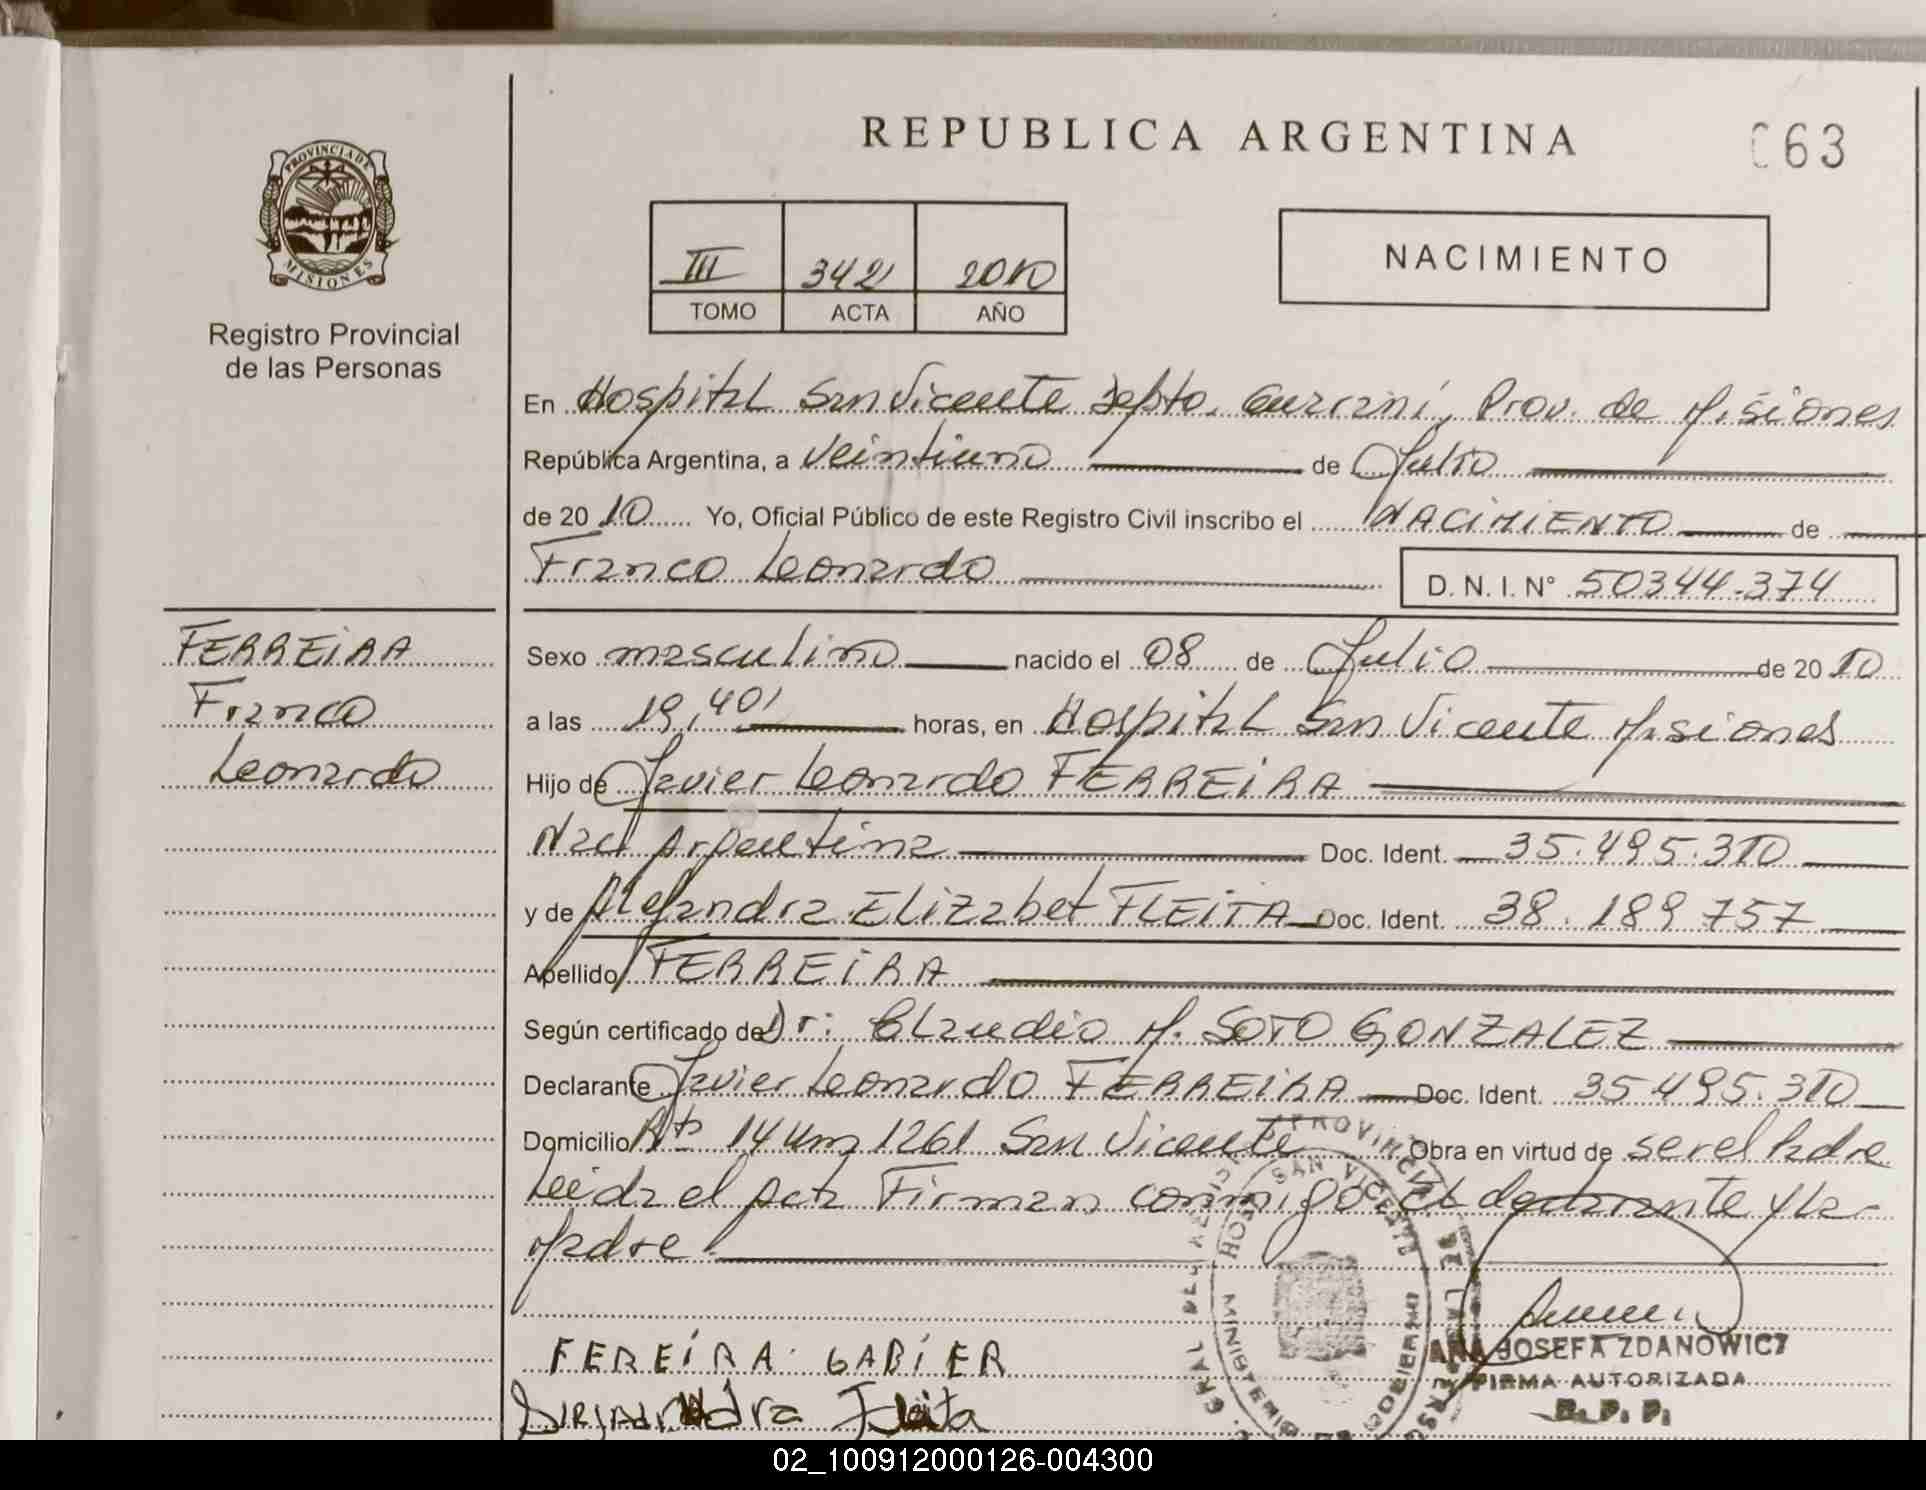 REPUBLICA ARGENTINA
063
PROVINCIA DE
MISIONES
Registro Provincial
de las Personas
III 3421 2010
TOMO ACTA AÑO
NACIMIENTO
En Hospital San Vicente Depto. Guaraní, Prov. de Misiones
República Argentina, a veintiuno de Julio
de 20 10 Yo, Oficial Público de este Registro Civil inscribo el NACIMIENTO de
Franco Leonardo
D. N. I. N° 50344.374
FERREIRA
Franco
Leonardo
Sexo masculino nacido el 08 de Julio de 20 10
a las 19,40' horas, en Hospital San Vicente Misiones
Hijo de Javier Leonardo FERREIRA
Nac Argentina Doc. Ident. 35.495.310
y de Alejandra Elizabet FLEITA Doc. Ident. 38.189.757
Apellido FERREIRA
Según certificado de Dr: Claudio M. SOTO GONZALEZ
Declarante Javier Leonardo FERREIRA Doc. Ident. 35.495.310
Domicilio Rta 14 Km 1261 San Vicente Obra en virtud de ser el Padre
Leida el Acta Firman conmigo el declarante y la
Madre.
HOSP. SAN VICENTE
MINISTERIO GOBIERNO
FEREIRA GABIER
ANA JOSEFA ZDANOWICZ
FIRMA AUTORIZADA
R. P. P.
Fleita
02_100912000126-004300